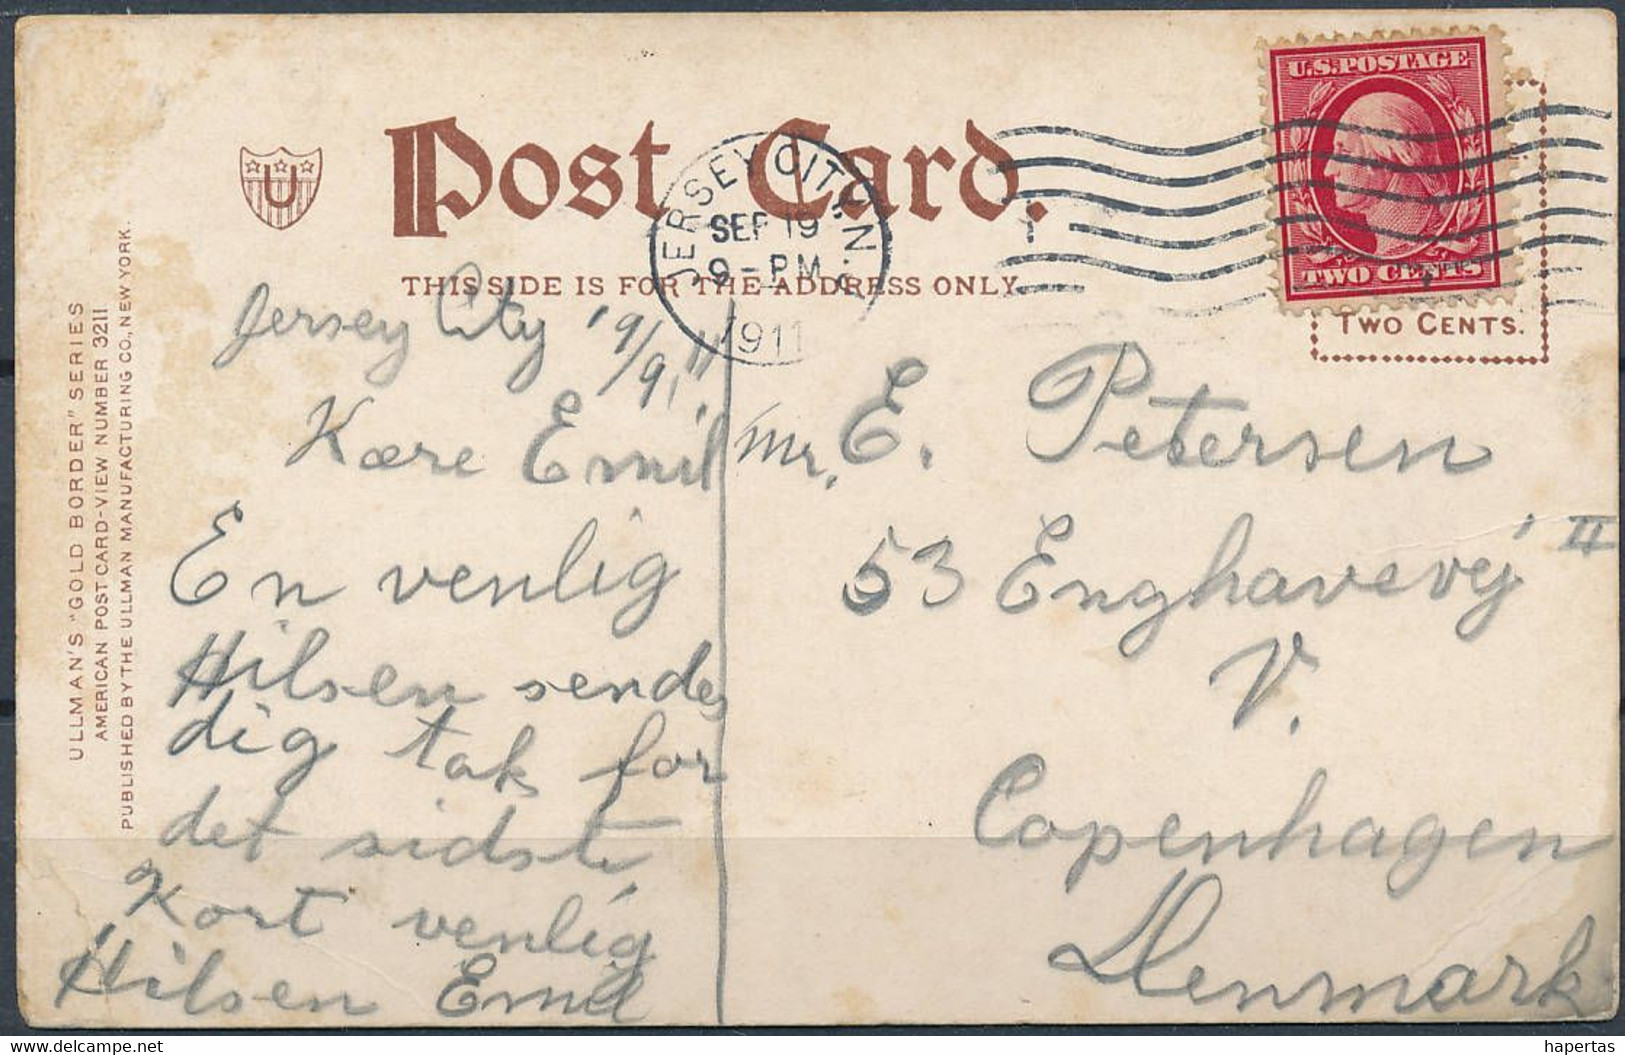 U
Post Card.
THIS SIDE IS FOR THE ADDRESS ONLY
U.S. POSTAGE
TWO CENTS
TWO CENTS.
JERSEY CITY, N.J.
SEP 19
9-PM
1911
ULLMAN'S "GOLD BORDER" SERIES
AMERICAN POSTCARD-VIEW NUMBER 3211
PUBLISHED BY THE ULLMAN MANUFACTURING CO., NEW YORK.
Jersey City 19/9, 11
Kære Emil
En venlig
Hilsen sendes
dig tak for
det sidste
Kort venlig
Hilsen Emil
Mr. E. Petersen
53 Enghavevej II
V.
Copenhagen
Denmark
www.delcampe.net
hapertas